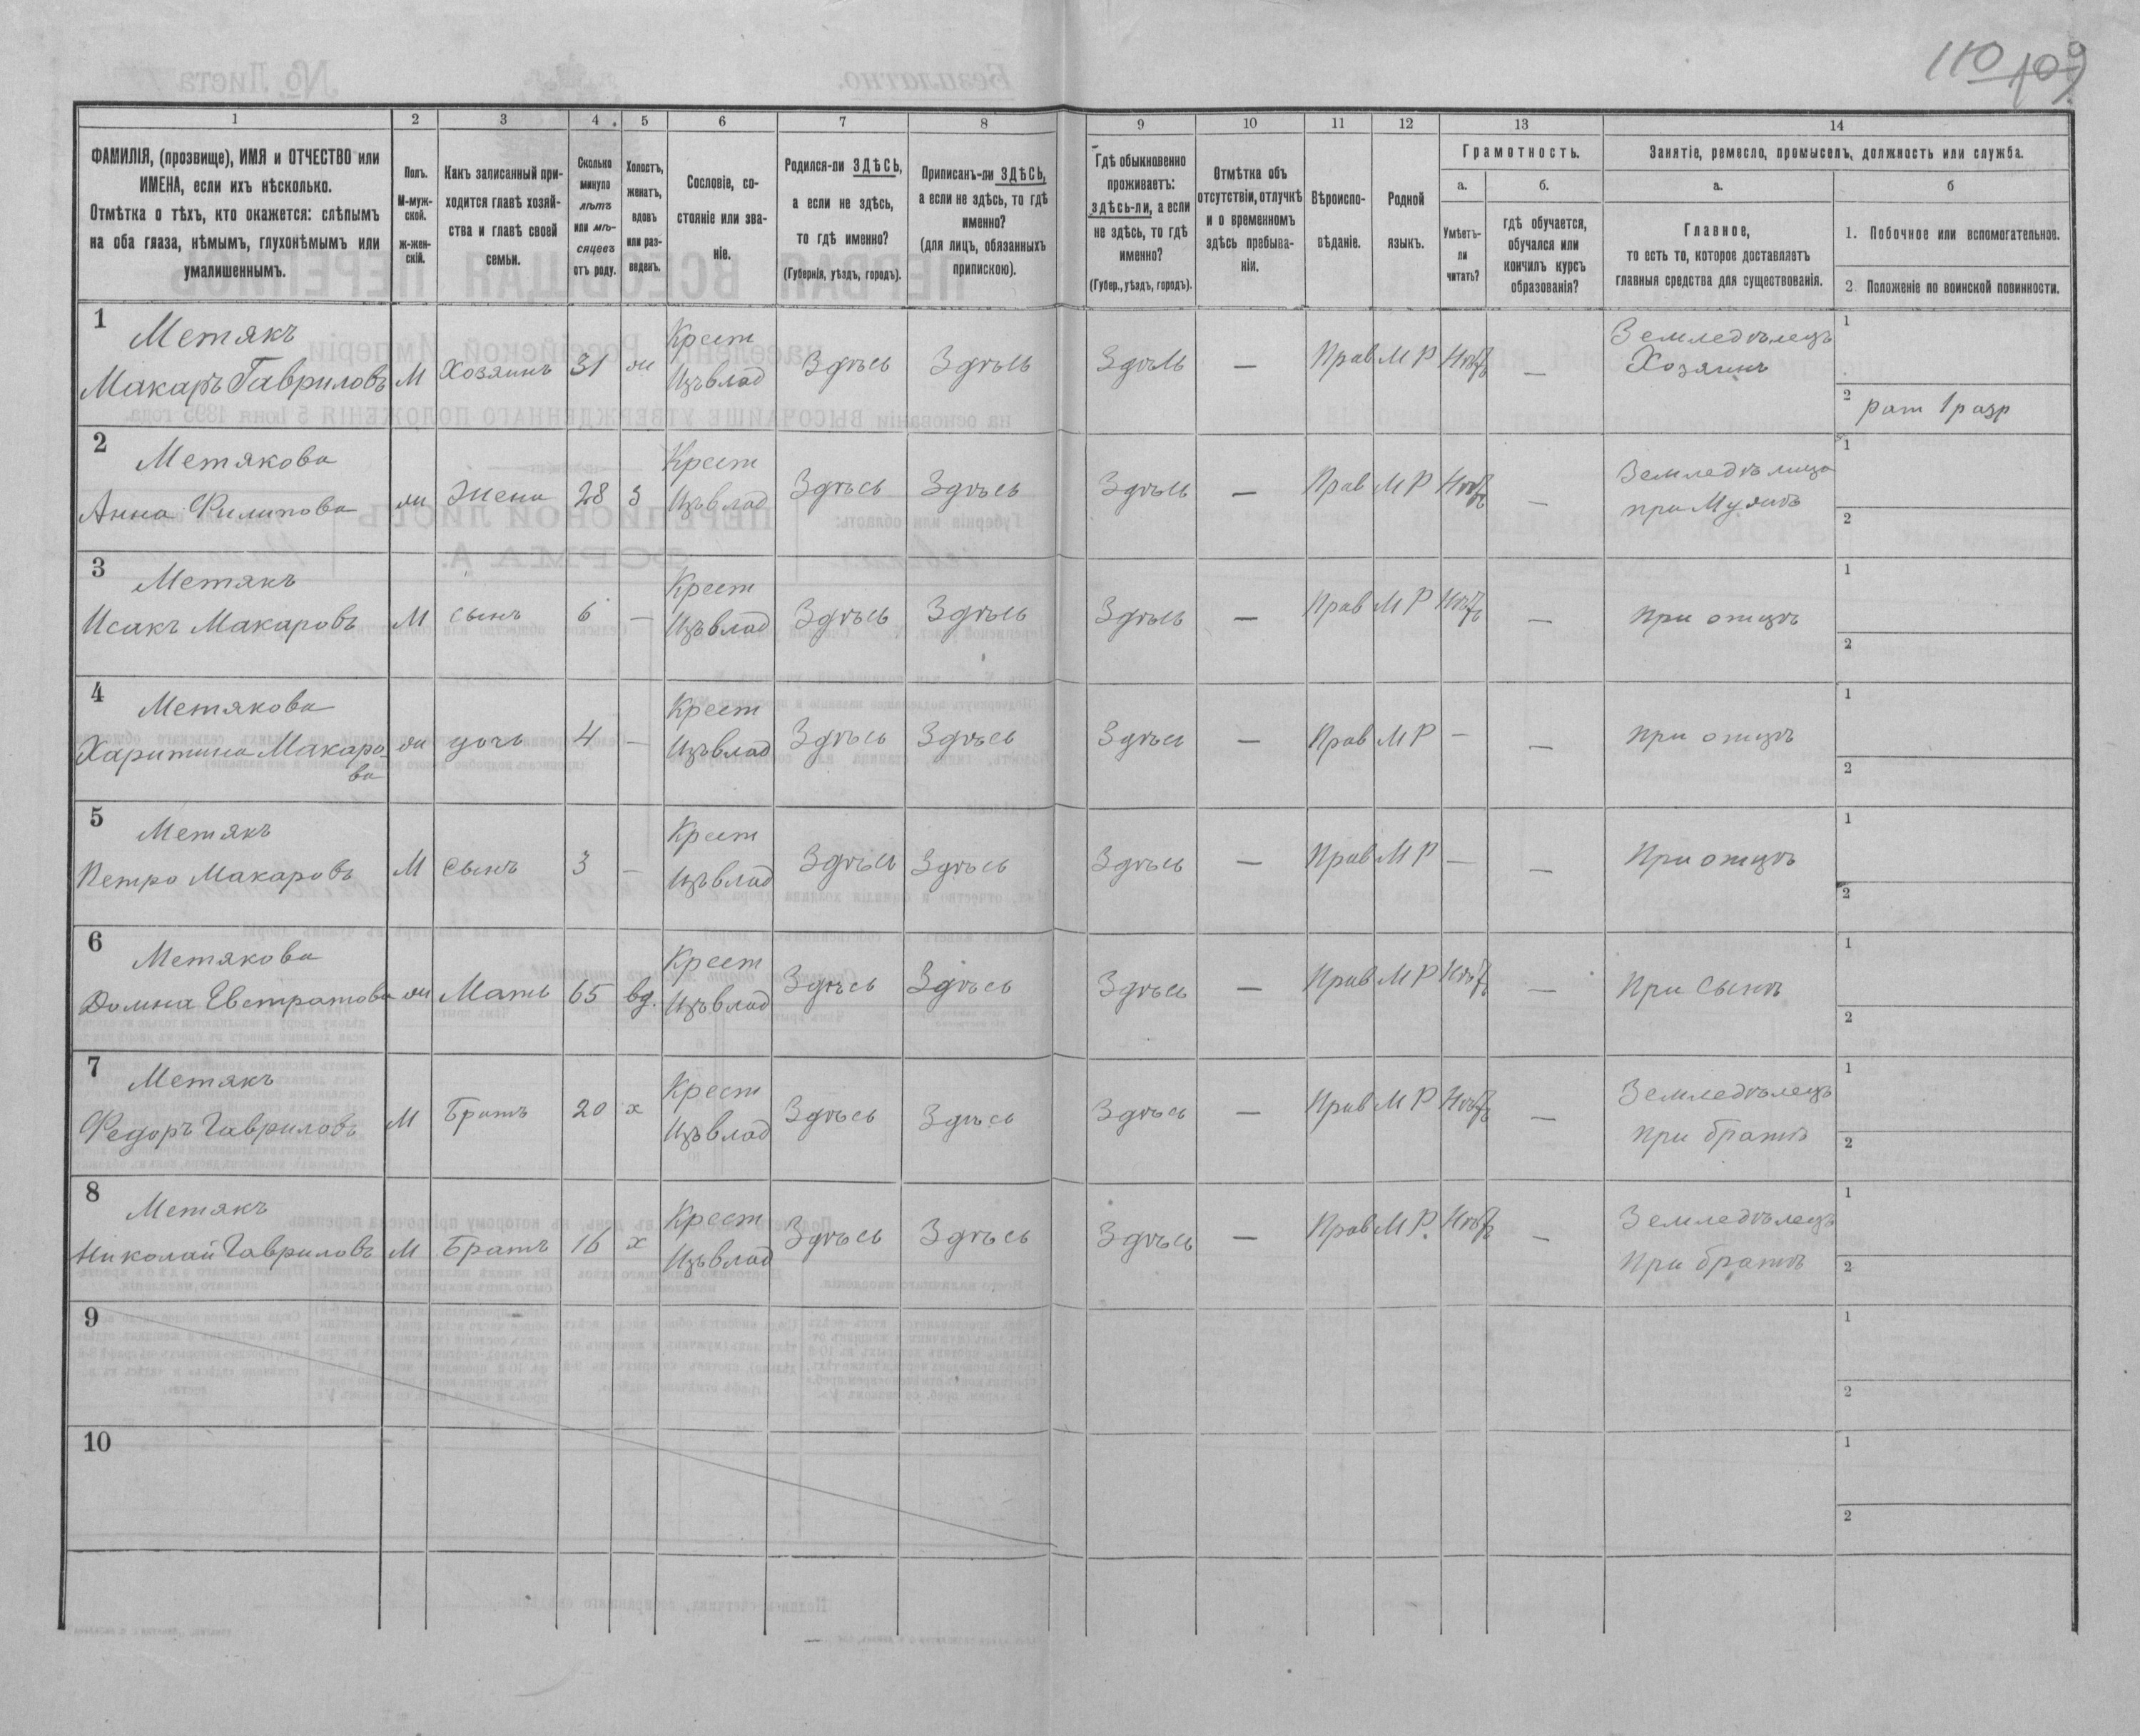 110 109
1 2 3 4 5 6 7 8 9 10 11 12 13 14
ФАМИЛІЯ, (прозвище), ИМЯ и ОТЧЕСТВО или
ИМЕНА, если ихъ нѣсколько.
Отмѣтка о тѣхъ, кто окажется: слѣпымъ
на оба глаза, нѣмымъ, глухонѣмымъ или
умалишеннымъ.
Полъ.
М-муж-
ской.
ж-жен-
скій.
Какъ записанный при-
ходится главѣ хозяй-
ства и главѣ своей
семьи.
Сколько
минуло
лѣтъ
или мѣ-
сяцевъ
отъ роду.
Холостъ,
женатъ,
вдовъ
или раз-
веденъ.
Сословіе, со-
стояніе или зва-
ніе.
Родился-ли ЗДѢСЬ,
а если не здѣсь,
то гдѣ именно?
(Губернія, уѣздъ, городъ).
Приписанъ-ли ЗДѢСЬ,
а если не здѣсь, то гдѣ
именно?
(для лицъ, обязанныхъ
припискою).
Гдѣ обыкновенно
проживаетъ:
здѣсь-ли, а если
не здѣсь, то гдѣ
именно?
(Губер., уѣздъ, городъ).
Отмѣтка объ
отсутствіи, отлучкѣ
и о временномъ
здѣсь пребыва-
ніи.
Вѣроиспо-
вѣданіе.
Родной
языкъ.
Грамотность.
а.
Умѣетъ-
ли
читать?
б.
гдѣ обучается,
обучался или
кончилъ курсъ
образованія?
Занятіе, ремесло, промыселъ, должность или служба.
а.
Главное,
то есть то, которое доставляетъ
главныя средства для существованія.
б
1. Побочное или вспомогательное.
2. Положеніе по воинской повинности.
1
Метякъ
Макаръ Гавриловъ М Хозяинъ 31 ж
Крест
Изъвлад
Здѣсь Здѣсь Здѣсь — Прав М Р Нѣтъ —
Земледѣлецъ
Хозяинъ
1
2 рат 1 разр
2
Метякова
Анна Филипова ж Жена 28 з
Крест
Изъвлад
Здѣсь Здѣсь Здѣсь — Прав М Р Нѣтъ —
Земледѣлица
при Мужѣ
1
2
3
Метякъ
Исакъ Макаровъ М сынъ 6 —
Крест
Изъвлад
Здѣсь Здѣсь Здѣсь — Прав М Р Нѣтъ —
При отцѣ
1
2
4
Метякова
Харитина Макаро-
ва
ж дочь 4 —
Крест
Изъвлад
Здѣсь Здѣсь Здѣсь — Прав М Р — —
При отцѣ
1
2
5
Метякъ
Петро Макаровъ М сынъ 3 —
Крест
Изъвлад
Здѣсь Здѣсь Здѣсь — Прав М Р — —
При отцѣ
1
2
6
Метякова
Домна Евстратова ж Мать 65 вд.
Крест
Изъвлад
Здѣсь Здѣсь Здѣсь — Прав М Р Нѣтъ —
При Сынѣ
1
2
7
Метякъ
Федоръ Гавриловъ М Братъ 20 х
Крест
Изъвлад
Здѣсь Здѣсь Здѣсь — Прав М Р Нѣтъ —
Земледѣлецъ
при братѣ
1
2
8
Метякъ
Николай Гавриловъ М Братъ 16 х
Крест
Изъвлад
Здѣсь Здѣсь Здѣсь — Прав М Р. Нѣтъ —
Земледѣлецъ
При братѣ
1
2
9
1
2
10
1
2